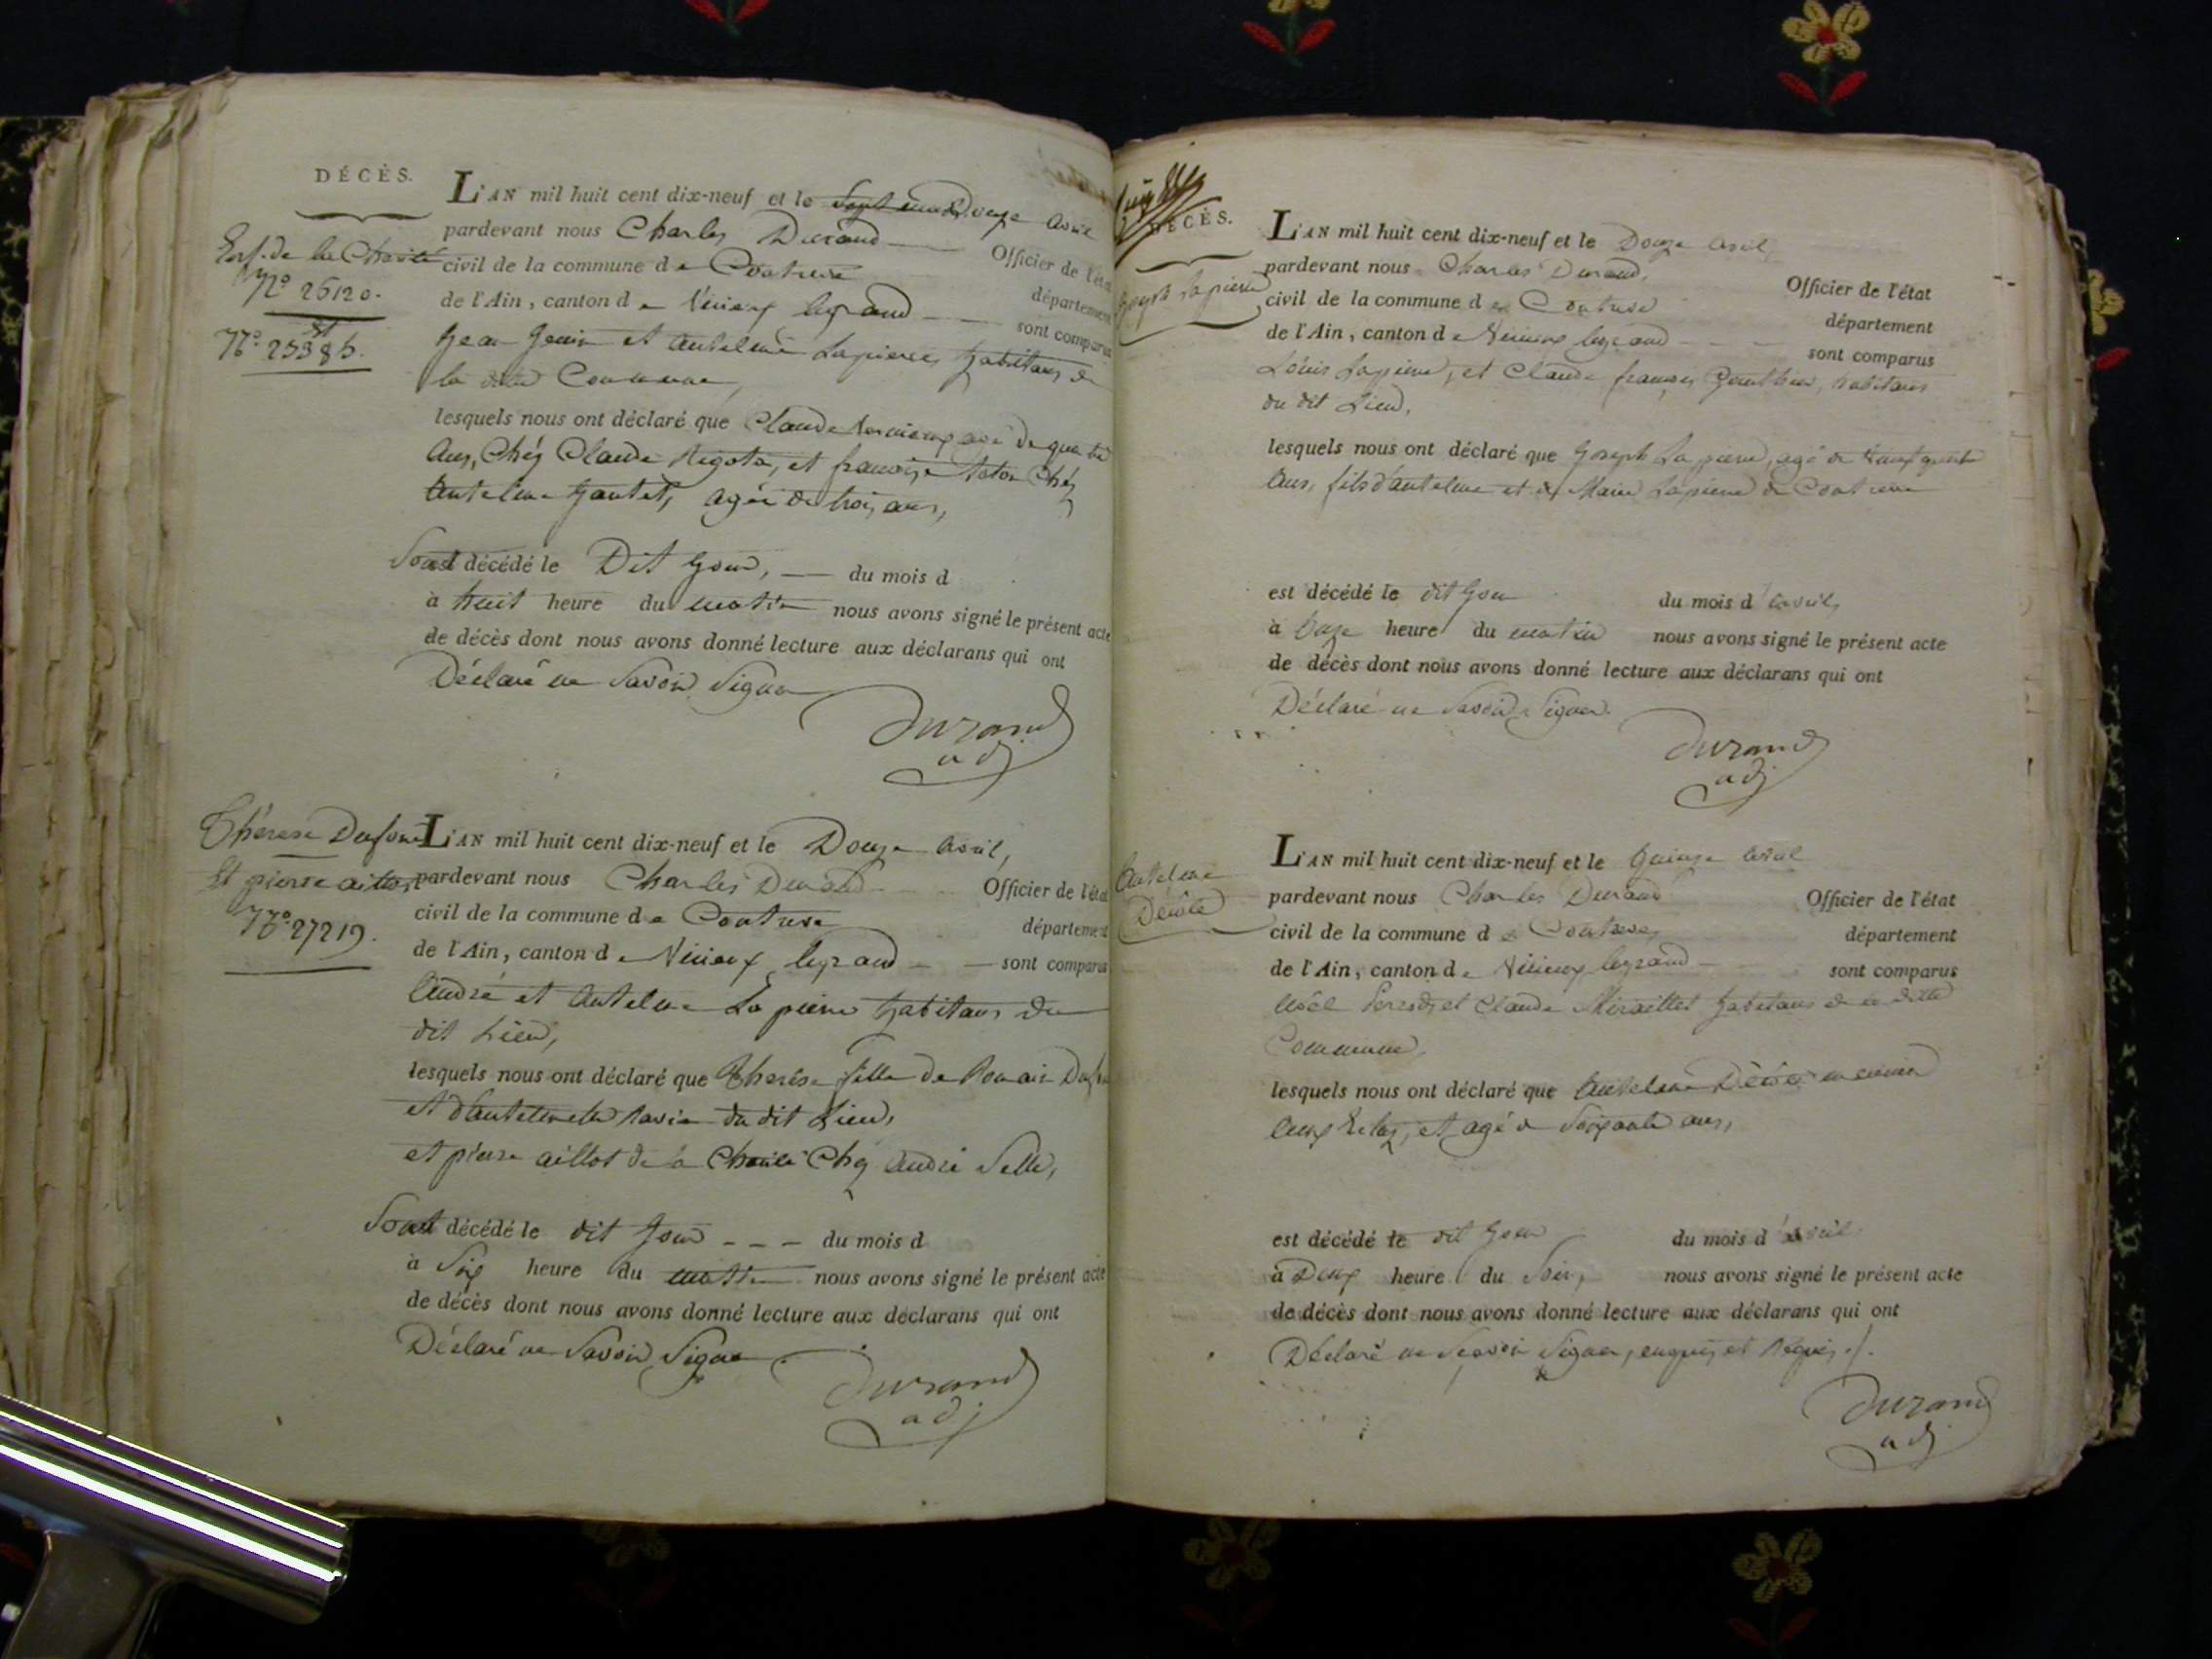 DÉCÈS.
Enf. de la Charité
N.° 26120.
et
N.° 25385.
L'AN mil huit cent dix-neuf et le Douze avril
pardevant nous Charles Durand Officier de l'état
civil de la commune de Contrevé département
de l'Ain, canton de Virieux legrand sont comparus
Jean Genin et Antelme Lapierre, habitans de
la ditte Commune,
lesquels nous ont déclaré que Claude agé de quatre
ans, Chéz Claude et françoise Chéz
Antelme Gautet, agée de trois ans,
Sont décédé le Dit Jour, du mois d
à huit heure du matin nous avons signé le présent acte
de décès dont nous avons donné lecture aux déclarans qui ont
Déclaré ne Savoir Signer
Durand
adj
Thérese Dufour
et pierre aillot
N.° 27219.
L'AN mil huit cent dix-neuf et le Douze avril,
pardevant nous Charles Durand Officier de l'état
civil de la commune de Contrevé département
de l'Ain, canton de Virieux legrand sont comparus
André et Antelme Lapierre habitans du
dit Lieu,
lesquels nous ont déclaré que Therése fille de Romain
et d'Antelmette Ravier du dit Lieu,
et pierre aillot de la Charité Chéz André Selle,
Sont décédé le dit Jour du mois d
à Six heure du matin nous avons signé le présent acte
de décès dont nous avons donné lecture aux déclarans qui ont
Déclaré ne Savoir Signer
Durand
adj
DÉCÈS.
Joseph Lapierre
L'AN mil huit cent dix-neuf et le Douze avril,
pardevant nous Charles Durand, Officier de l'état
civil de la commune de Contrevé département
de l'Ain, canton de Virieux legrand sont comparus
Louis Lapierre, et Claude françois Gonthier, habitans
du dit Lieu,
lesquels nous ont déclaré que Joseph Lapierre, agé de
ans, fils d'antelme et de Marie Lapierre de Contrevé
est décédé le dit Jour du mois d'avril,
à Onze heure du matin nous avons signé le présent acte
de décès dont nous avons donné lecture aux déclarans qui ont
Déclaré ne Savoir Signer
Durand
adj
Antelme
L'AN mil huit cent dix-neuf et le Quinze avril
pardevant nous Charles Durand Officier de l'état
civil de la commune de Contrevé, département
de l'Ain, canton de Virieux legrand sont comparus
Noël et Claude Miraillet habitans de la ditte
Commune,
lesquels nous ont déclaré que Antelme
et agé de Soixante ans,
est décédé le dit Jour du mois d'avril
à Deux heure du Soir, nous avons signé le présent acte
de décès dont nous avons donné lecture aux déclarans qui ont
Déclaré ne Scavoir Signer, enquis et Réquis ./.
Durand
adj